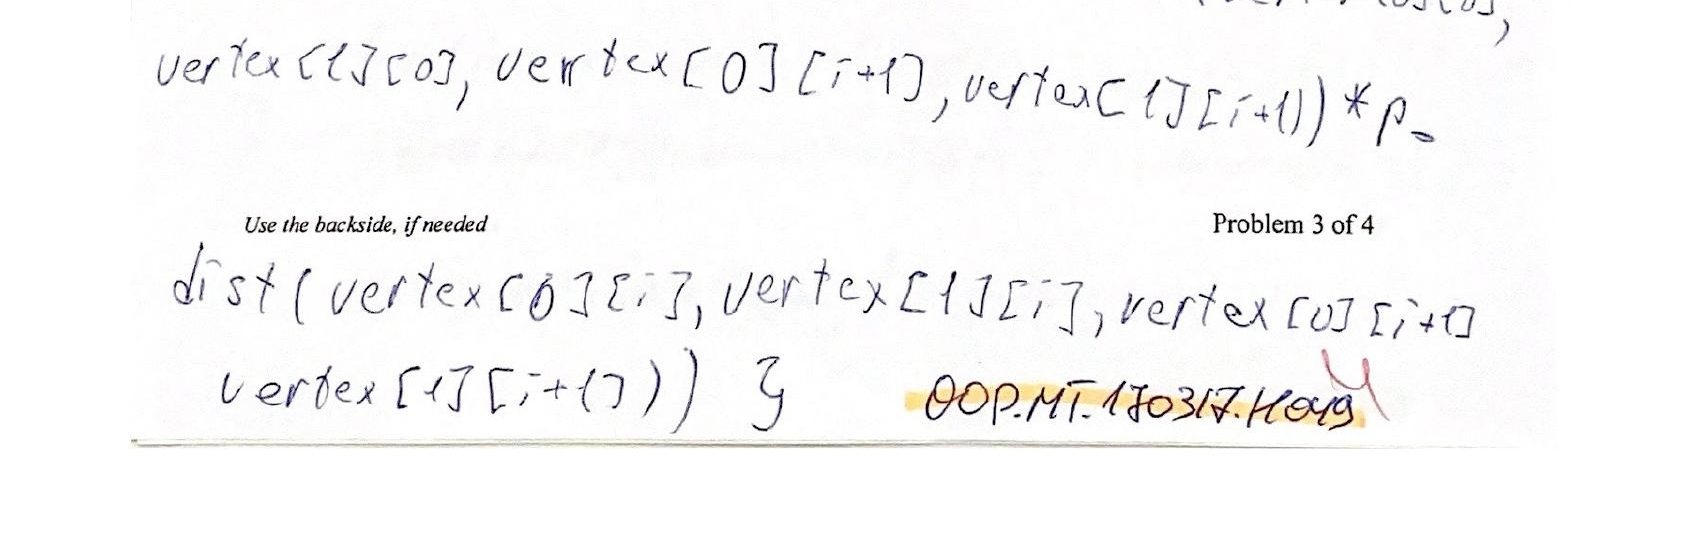 vertex[1][0], vertex[0][i+1], vertex[1][i+1]) * p.
Use the backside, if needed
Problem 3 of 4
dist(vertex[0][i], vertex[1][i], vertex[0][i+1]
vertex[1][i+1])) }
OOP.MT.170317.H049